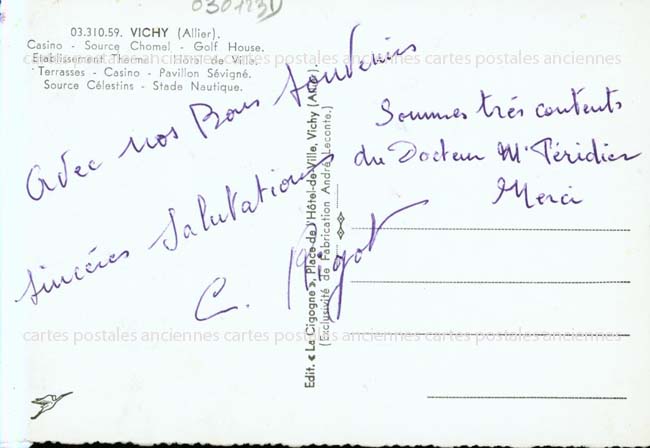 030123D
03.310.59. VICHY (Allier).
Casino - Source Chomel - Golf House.
Etablissement Thermal - Hôtel de Ville.
Terrasses - Casino - Pavillon Sévigné.
Source Célestins - Stade Nautique.
cartes postales anciennes cartes postales anciennes cartes postales anciennes
Avec nos Bons Souvenirs
sincères Salutations
C. Pigot
Edit. « La Cigogne », Place de l'Hôtel-de-Ville, Vichy (Allier).
(Exclusivité de Fabrication André Leconte.)
Sommes trés contents
du Docteur Mr Péridier
Merci
cartes postales anciennes cartes postales anciennes cartes postales anciennes
cartes postales anciennes cartes postales anciennes cartes postales anciennes